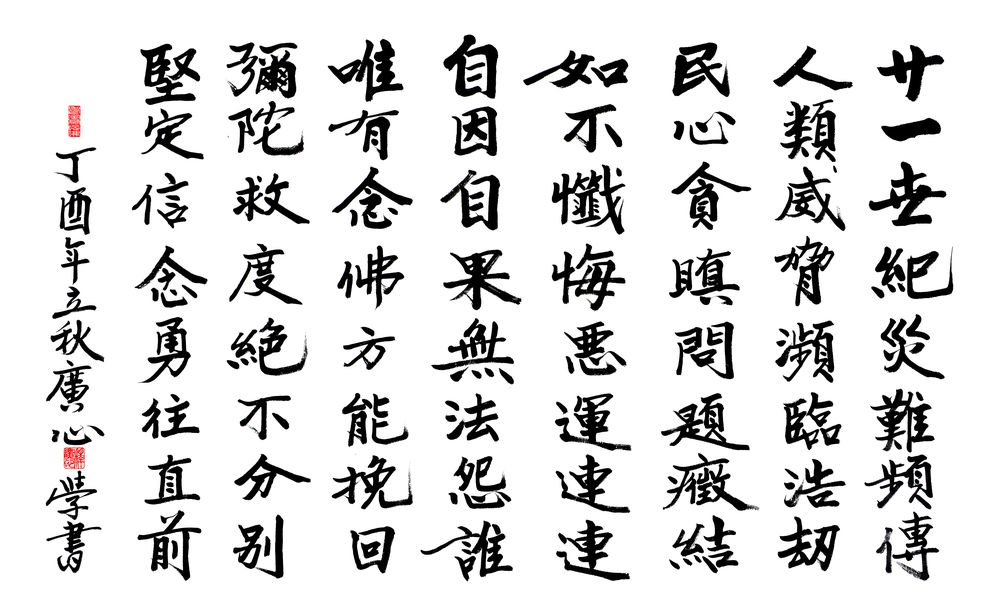 廿一世紀災難頻傳
人類威脅瀕臨浩劫
民心貪瞋問題癥結
如不懺悔惡運連連
自因自果無法怨誰
唯有念佛方能挽回
彌陀救度絕不分別
堅定信念勇往直前
丁酉年立秋廣心學書